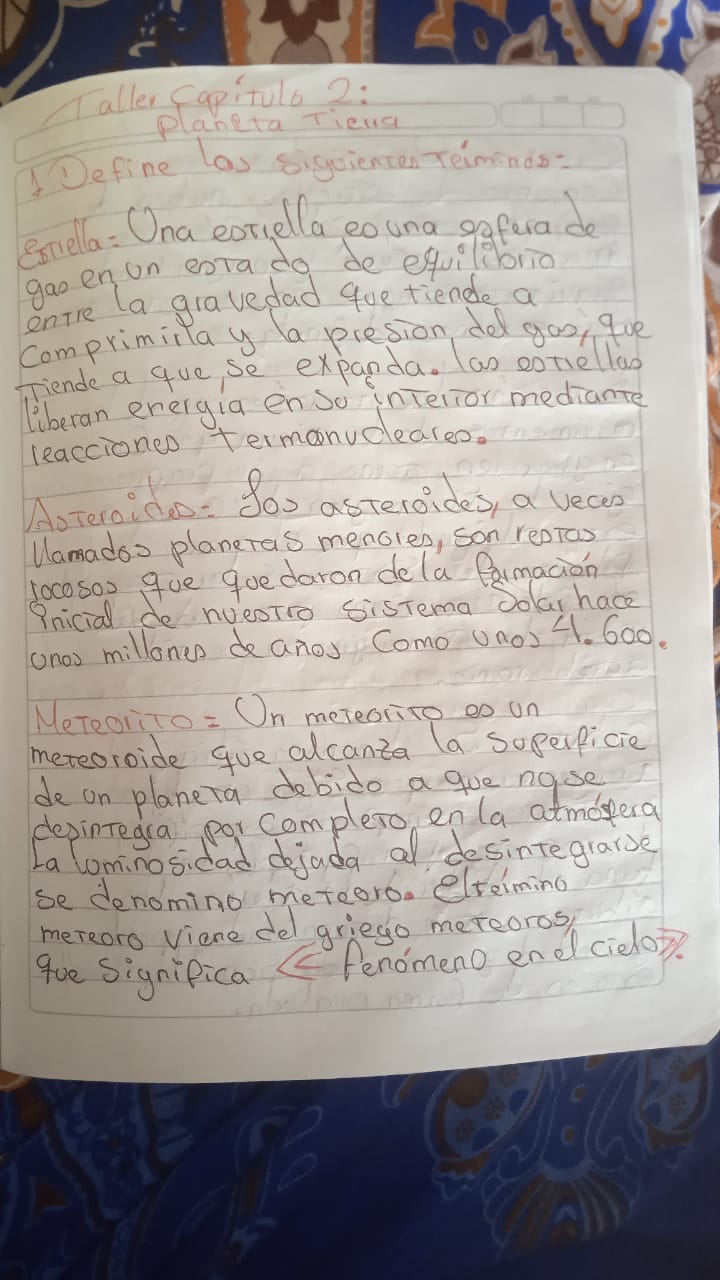 Taller Capítulo 2:
Planeta Tierra
1 Define los siguientes Términos=
Estrella= Una estrella es una esfera de
gas en un estado de equilibrio
entre la gravedad que tiende a
Comprimirla y la presión del gas, que
Tiende a que se expanda. las estrellas
liberan energía en su interior mediante
reacciones termonucleares.
Asteroides= Los asteroides, a veces
llamados planetas menores, son restos
rocosos que quedaron de la formación
inicial de nuestro sistema Solar hace
unos millones de años Como unos 4.600.
Meteorito= Un meteorito es un
meteoroide que alcanza la superficie
de un planeta debido a que no se
desintegra por Completo en la atmósfera
La luminosidad dejada al desintegrarse
se denomino meteoro. El término
meteoro viene del griego meteoros,
que significa << fenómeno en el cielo>>.